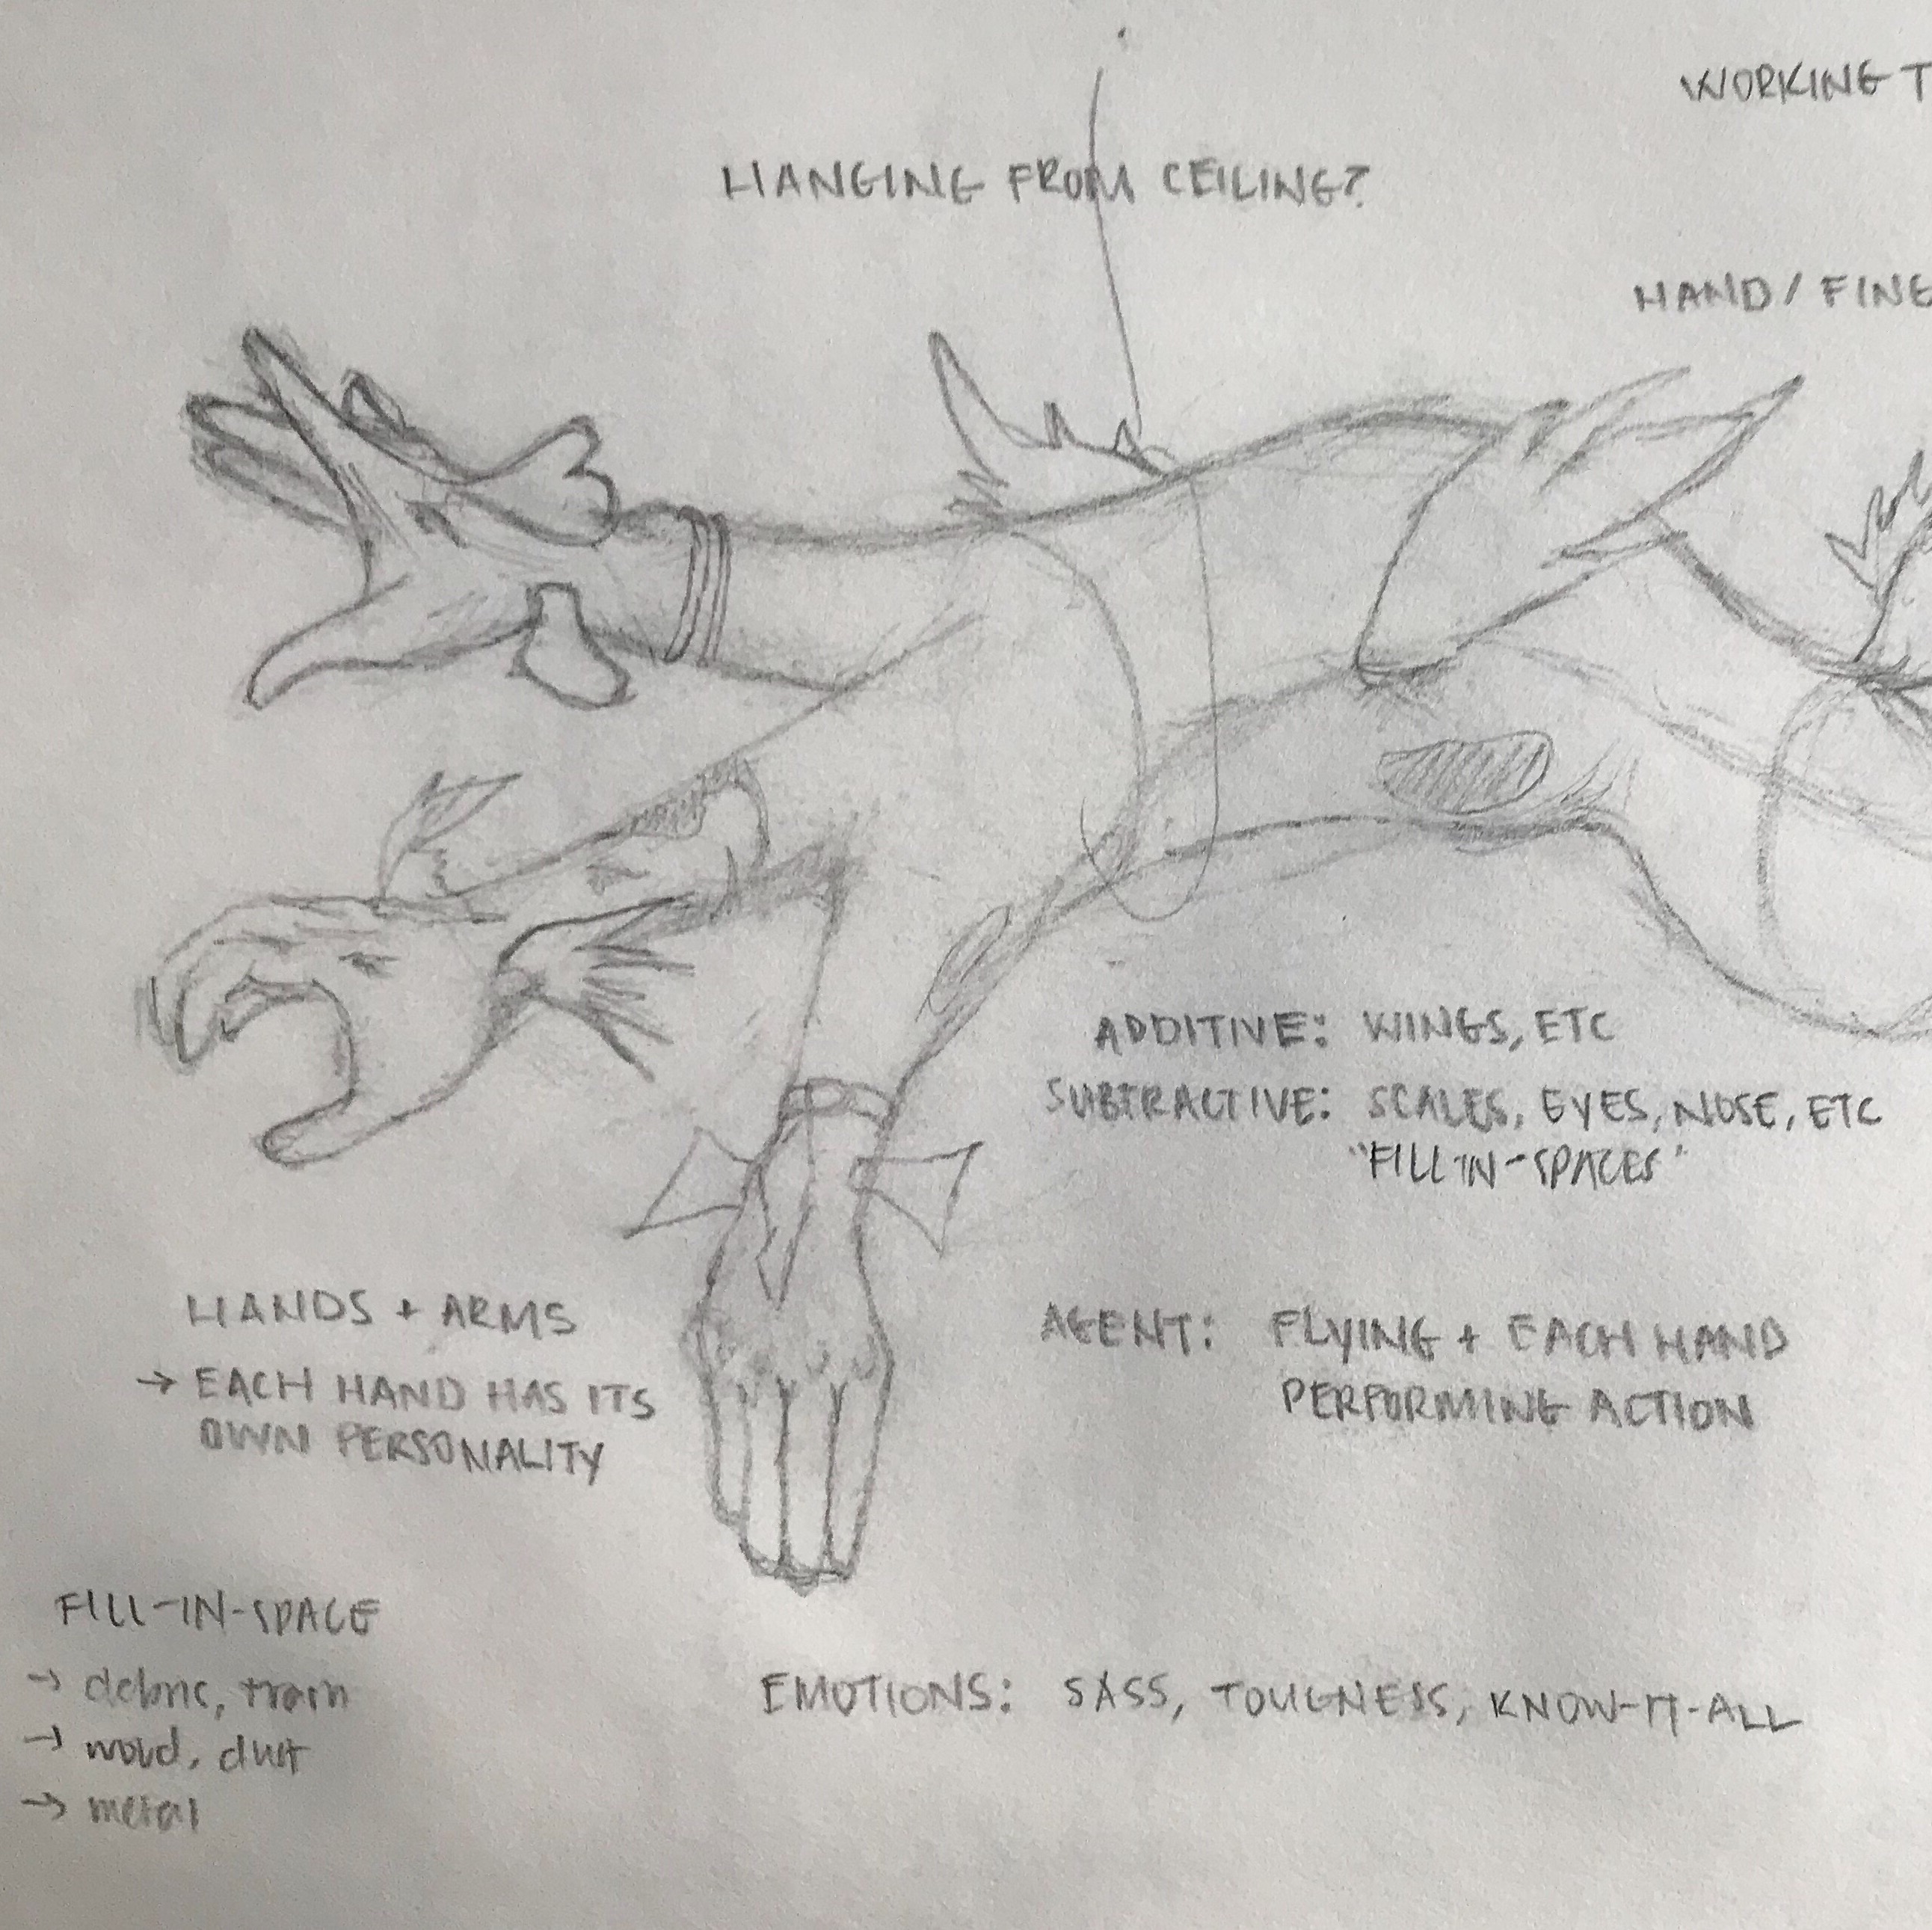 WORKING T
HANGING FROM CEILING?
HAND / FINE
ADDITIVE: WINGS, ETC
SUBTRACTIVE: SCALES, EYES, NOSE, ETC
"FILL-IN-SPACES"
HANDS + ARMS
→ EACH HAND HAS ITS
OWN PERSONALITY
AGENT: FLYING + EACH HAND
PERFORMING ACTION
FILL-IN-SPACE
→ debris, trash
→ wood, dust
→ metal
EMOTIONS: SASS, TOUGNESS, KNOW-IT-ALL